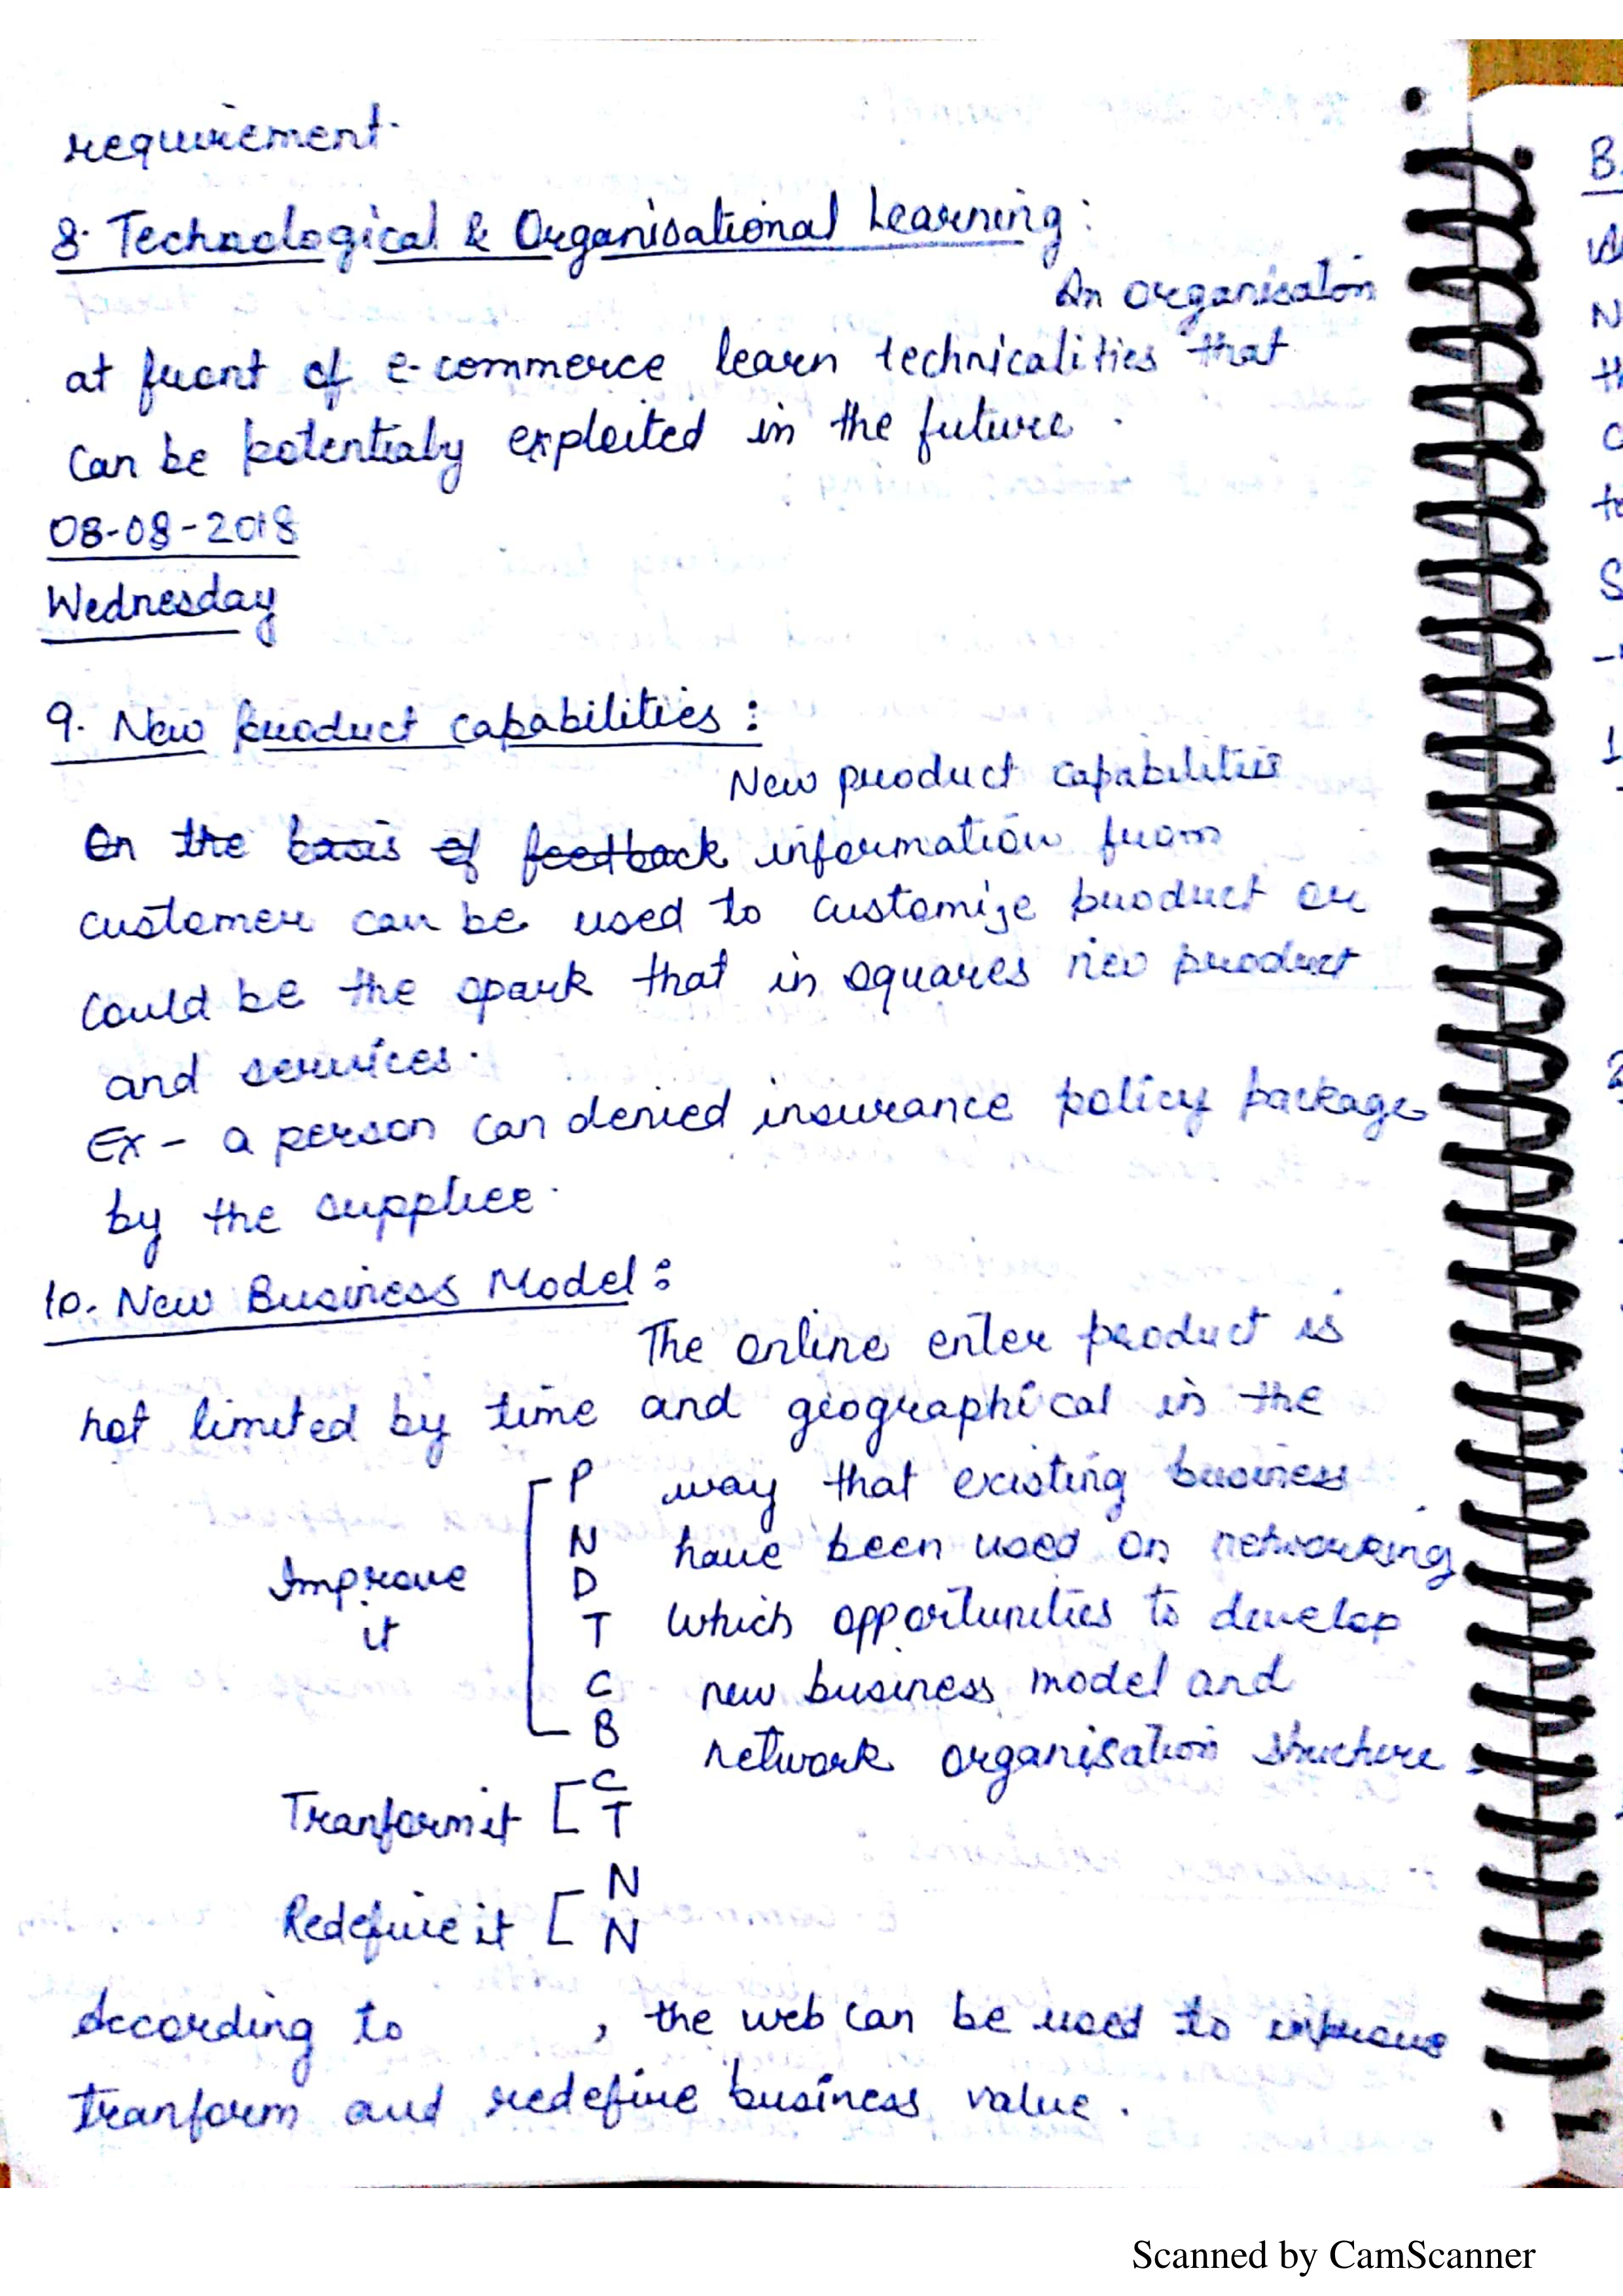 requirement.
8. Technological & Organisational Learning:
An organisation
at front of e-commerce learn technicalities that
can be potentialy exploited in the future.
08-08-2018
Wednesday
9. New product capabilities:
New product capabilities
On the basis of feedback information from
customer can be used to customize product or
could be the spark that in squares new product
and services.
Ex- a person can denied insurance policy package
by the supplier.
10. New Business Model:
The online enter product is
not limited by time and geographical in the
P way that existing business
N have been used on networking
Improve D
it T which opportunities to develop
C new business model and
B network organisation structure.
Tranform it C
T
N
Redefine it N
According to , the web can be used to improve
tranform and redefine business value.
B.
N
th
C
to
S
1
2
Scanned by CamScanner